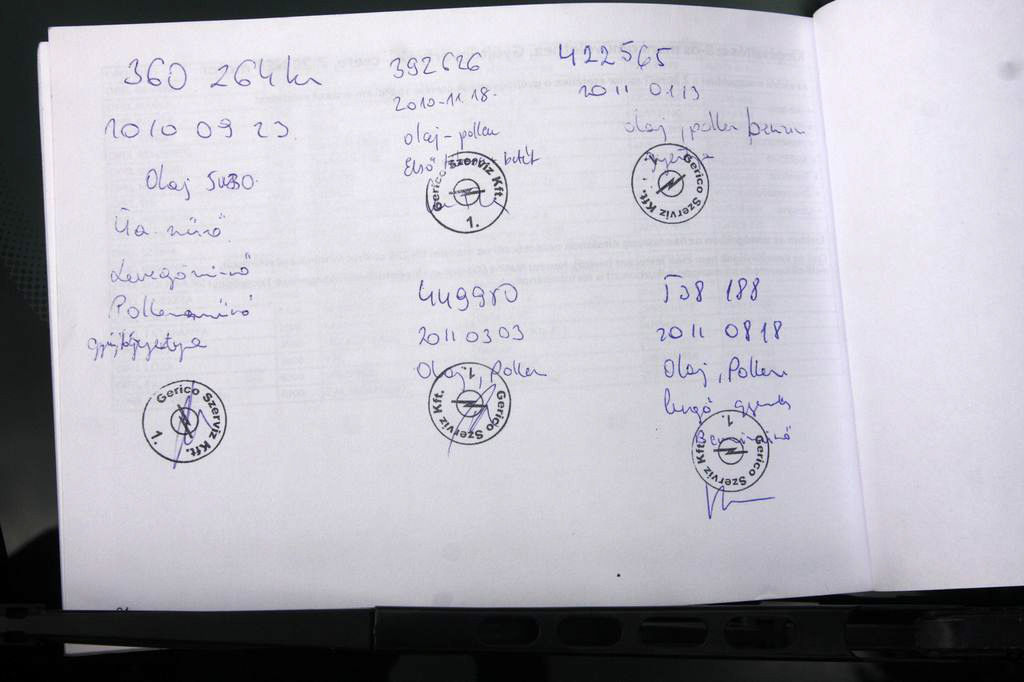 360 264 km
2010 09 23.
Olaj 5W30.
Üa. szűrő
Levegőszűrő
Pollenszűrő
gyújtógyertya
Gerico Szerviz Kft.
1.
392626
2010-11.18.
olaj - pollen
Első betét
Gerico Szerviz Kft.
1.
422565
2011 01 13
olaj, pollen benzin
Gerico Szerviz Kft.
1.
449980
2011 03 03
Olaj, Pollen
Gerico Szerviz Kft.
1.
538 188
2011 08 18
Olaj, Pollen
Benzinszűrő
Gerico Szerviz Kft.
1.